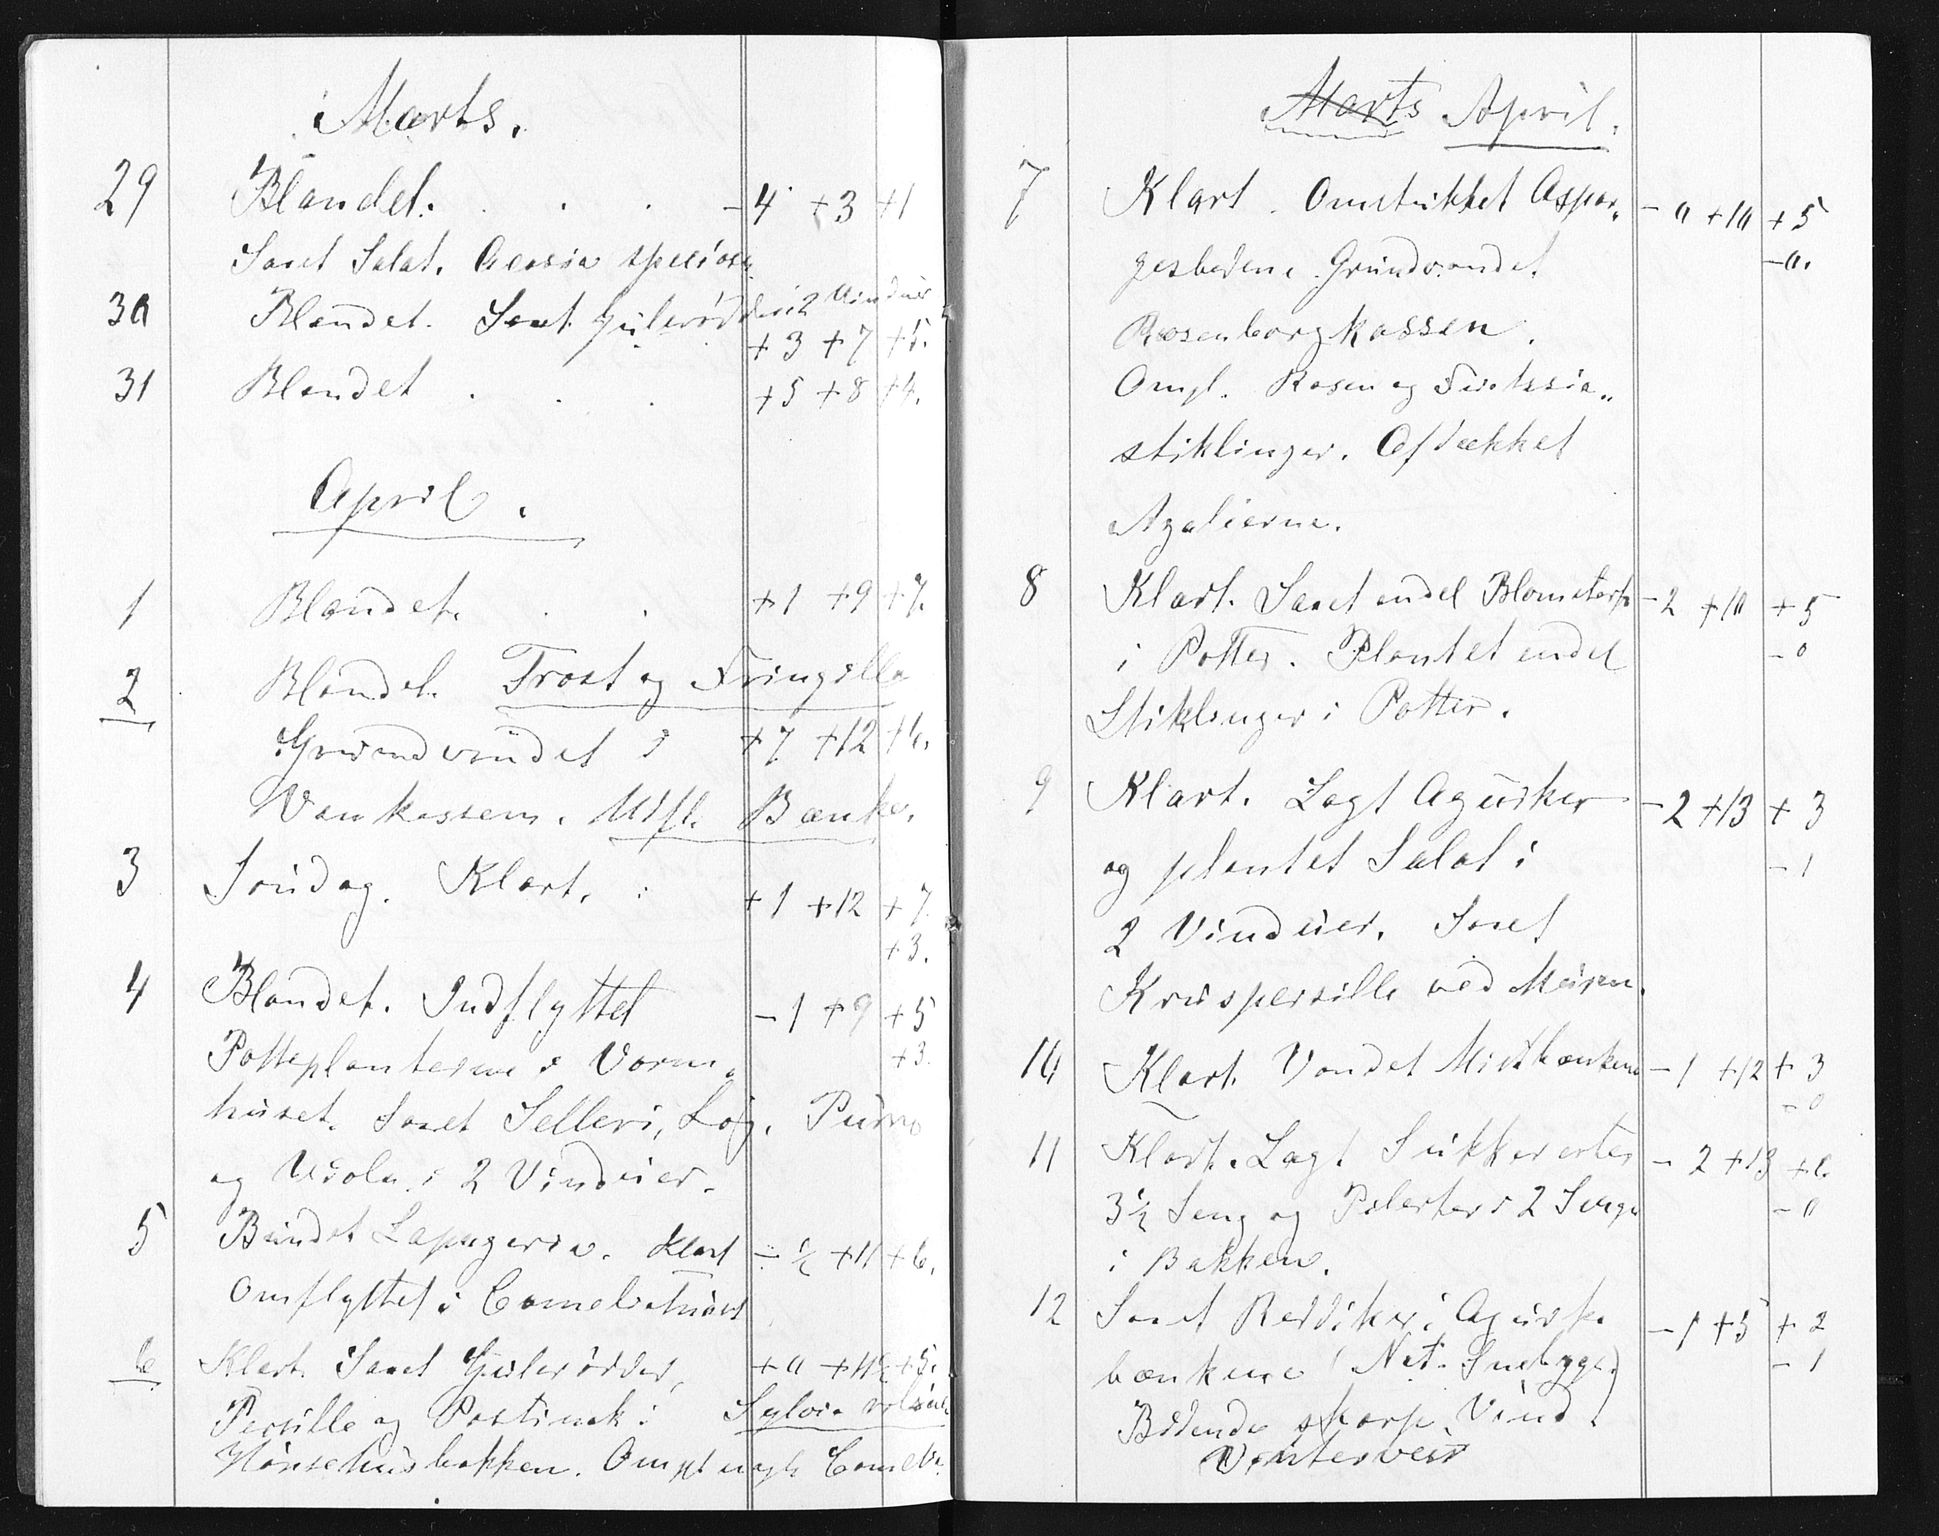 Marts.
29 Blandet. . . . -4 +3 +1
Saaet Salat. Acasia speciosa
30 Blandet. Saaet Gulerødder i 2 Vinduer
+3 +7 +5.
31 Blandet . . . +5 +8 +4.
April.
1 Blandet. . . +1 +9 +7.
2 Blandet. Trost og Fringilla
Grundvandet i +7 +12 +6.
Vankassen. Bænke.
3 Søndag. Klart. +1 +12 +7.
+3.
4 Blandet. Indflyttet -1 +9 +5
Potteplanterne i Varm- +3.
huset. Saaet Selleri, Løg,
og Viola i 2 Vinduer.
5 Bundet Lapageria. Klart -½ +11 +6.
Omflyttet i Cameliahuset
6 Klart. Saaet Gulerødder, +0 +11½ +5.
Persille og Pastinak i Sylvia
Hønsehusbakken. Ompl
Marts April.
7 Klart. Omstukket Aspar- -0 +10 +5
gesbedene. Grundvandet -0.
Rosenborgkassen.
Ompl. Rosen og Fucksia-
stiklinger. Afdækket
Azalierne.
8 Klart. Saaet endel Blomsterfr -2 +10 +5
i Potter. Plantet endel -0
Stiklinger i Potter.
9 Klart. Lagt Agurker -2 +13 +3
og plantet Salat i -1
2 Vinduer. Saaet
Kruspersille ved Muren.
10 Klart. Vandet Mistbænkene -1 +12 +3
-0
11 Klart. Lagt Sukkererter -2 +13 +6.
3½ Seng og i 2 Senge -0
i Bakken.
12 Saaet Reddiker i Agurk- -1 +5 +2
bænkene (Nat. Snebyge.) -1
Bidende skarp Vind.
Vinterveir